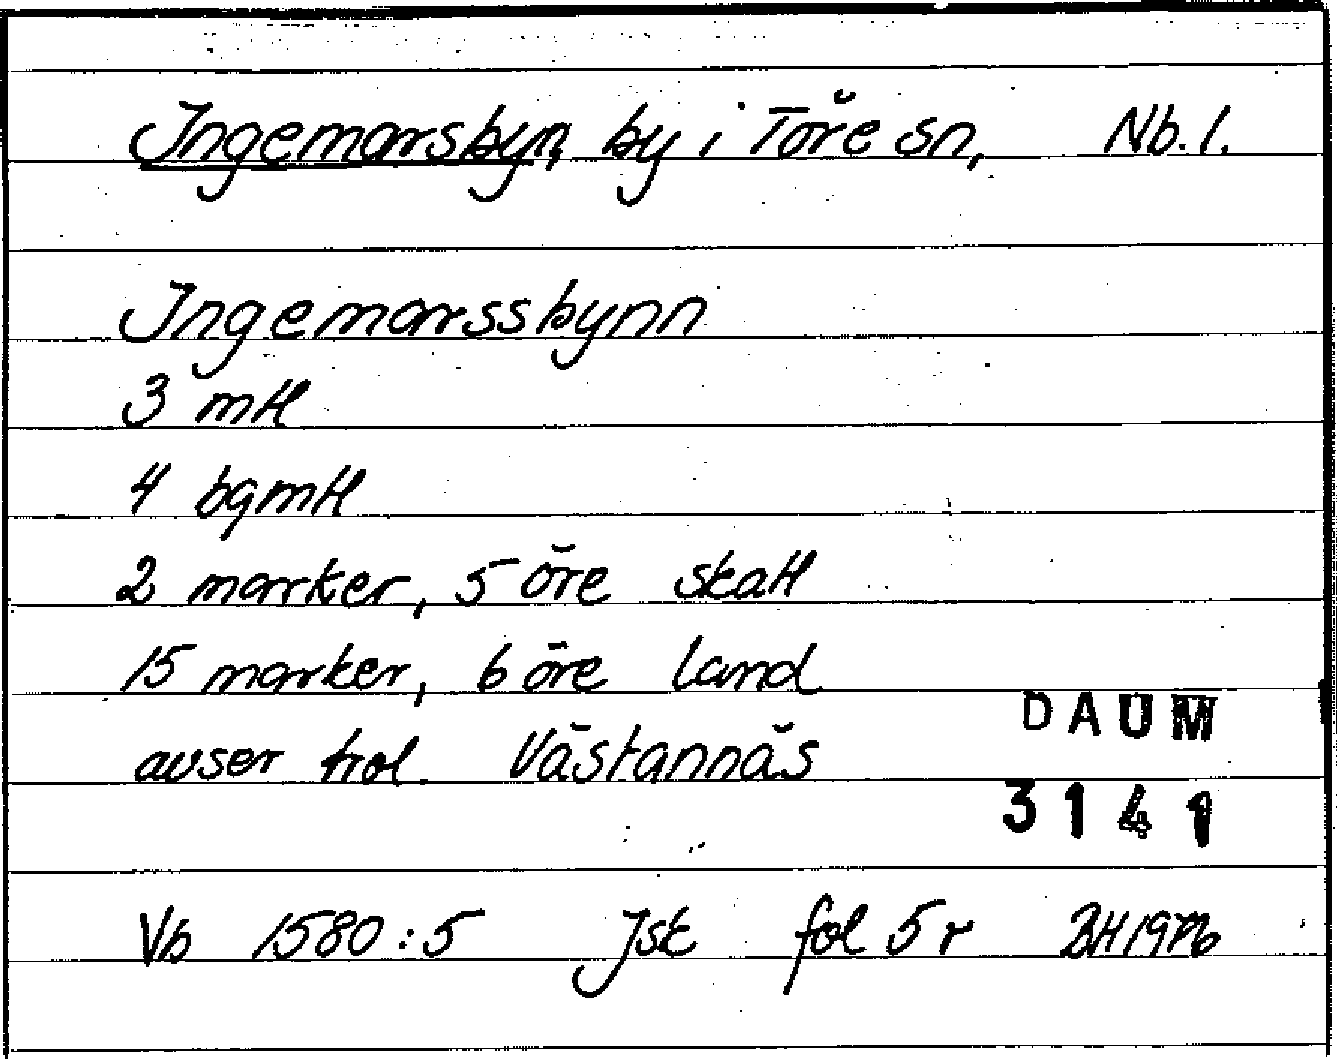 Ingemarsbyn, by i Töre sn, Nb. l.
Ingemarssbynn
3 mtl
4 bgmtl
2 marker, 5 öre skatt
15 marker, 6 öre land
avser trol. Västannäs
DAUM
3141
Vb 1580:5 Jsk fol 5 r BH 1976